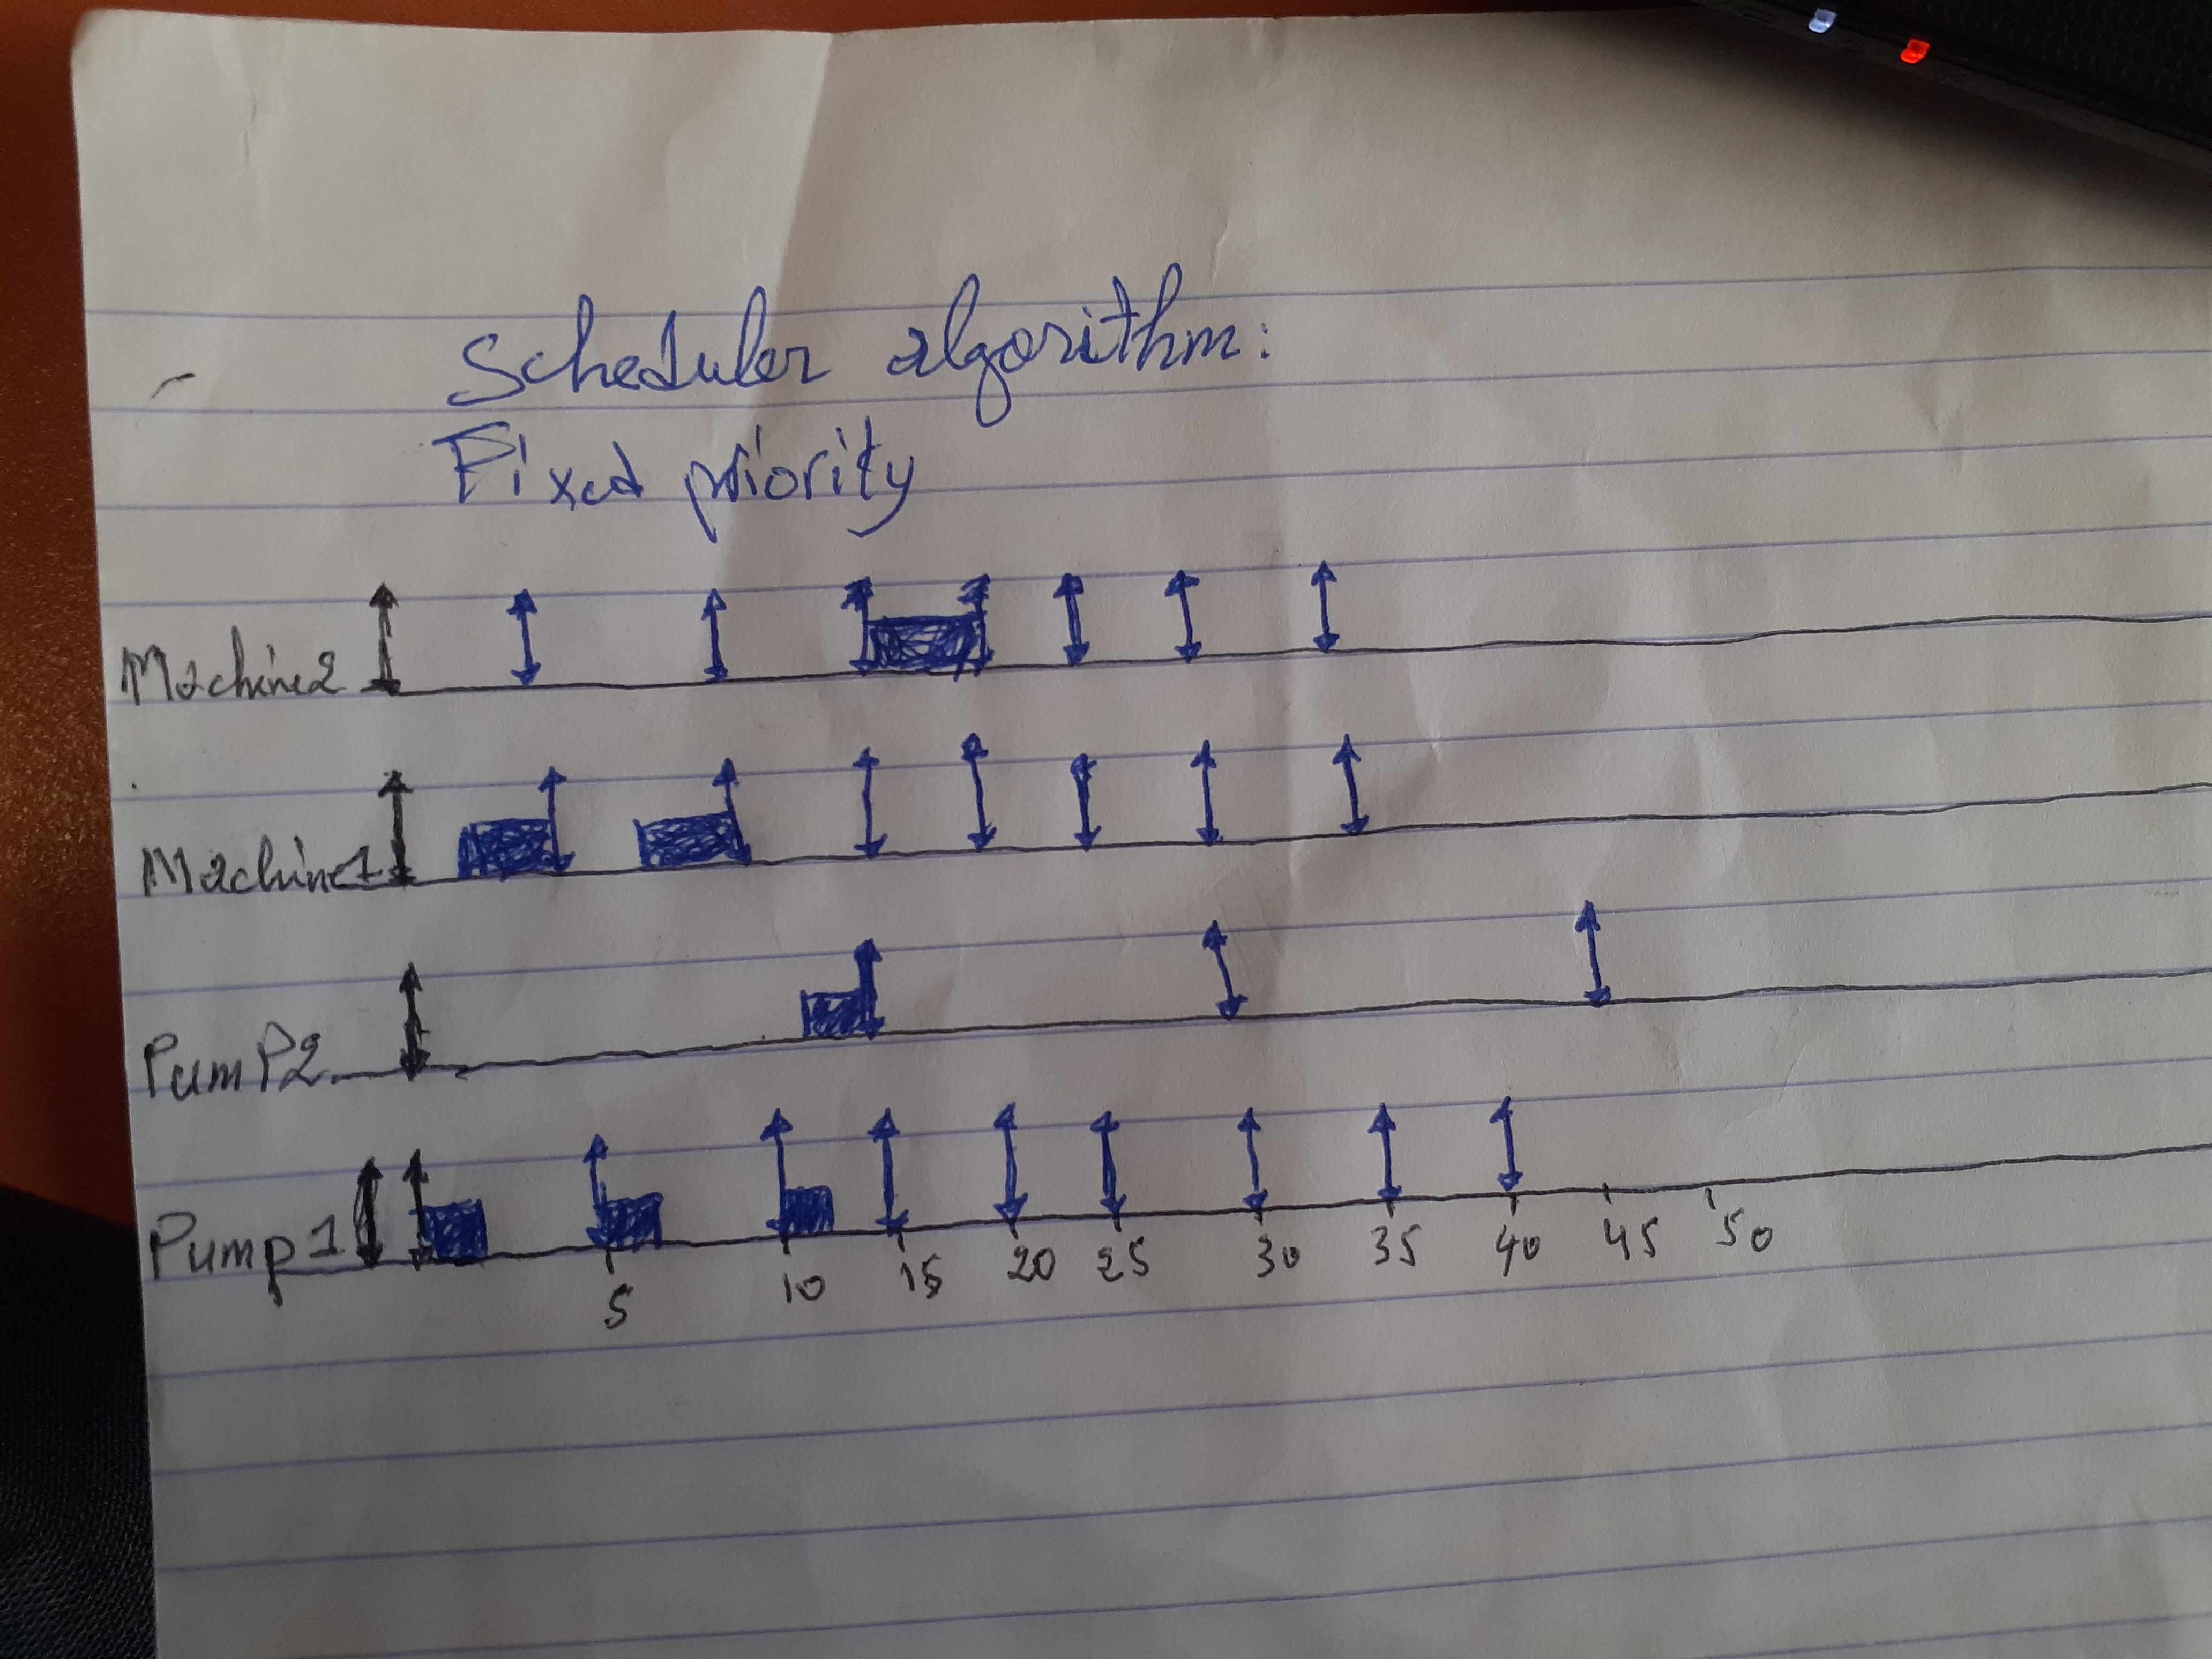 Scheduler algorithm:
Fixed priority
Machine2
Machine1
Pump2
Pump1
5 10 15 20 25 30 35 40 45 50